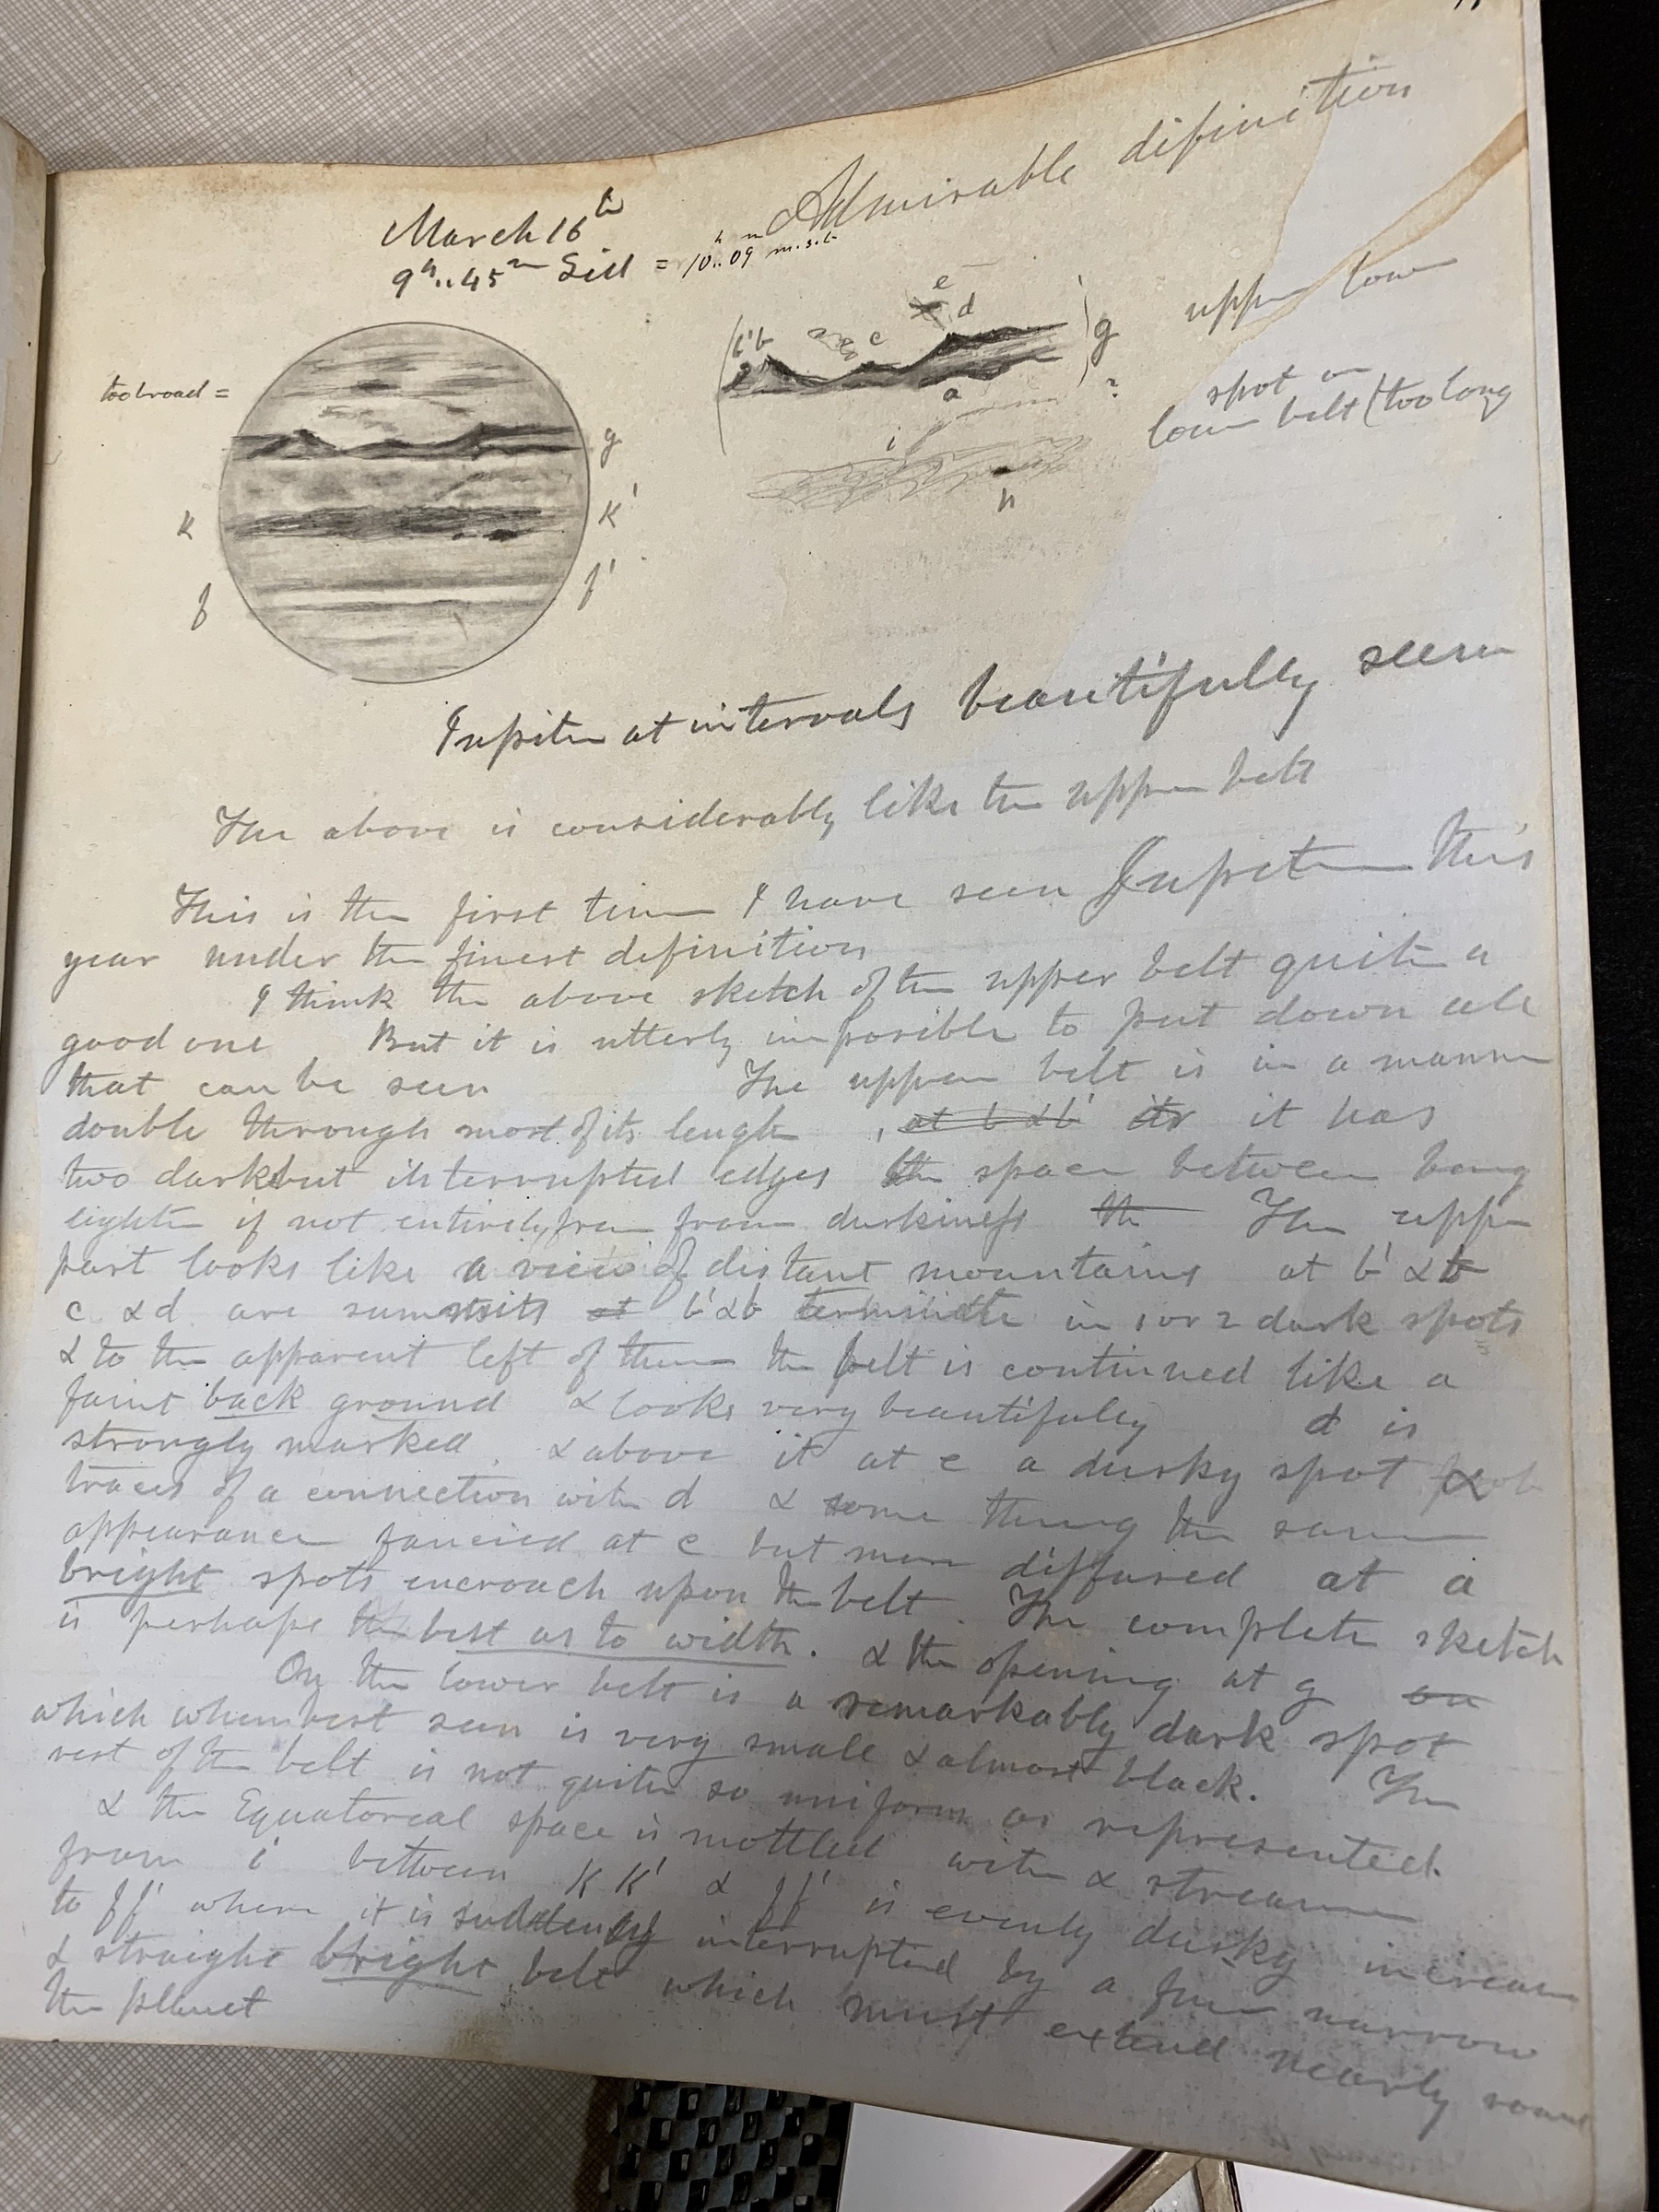 March 16th Admirable difinition
9h..45m Sid = 10h..09m m.s.t.
too broad =
g
K K'
f f'
b' b c e d
g
a
?
i
h
upper
spot on
lower belt (too long
Jupiter at intervals beautifully seen
The above is considerably like the upper belt
This is the first time I have seen Jupiter this
year under the finest definition
I think the above sketch of the upper belt quite a
good one But it is utterly impossible to put down all
that can be seen The upper belt is in a manner
double through most of its length , at b & b' its it has
two dark but interrupted edges the space between being
lighter if not entirely free from duskiness the The upper
part looks like a view of distant mountains at b' & b
c & d are summits at b' & b terminate in 1 or 2 dark spots
& to the apparent left of them the belt is continued like a
faint back ground & looks very beautifully d is
strongly marked . & above it at e a dusky spot &
traces of a connection with d & some thing the same
appearance fancied at c but more diffused at a
bright spots encroach upon the belt . The complete sketch
is perhaps the best as to width . & the opening at g on
On the lower belt is a remarkably dark spot
which when best seen is very small & almost black. The
rest of the belt is not quite so uniform as represented.
& the Equatoreal space is mottled with & streams
from i between K K' & f f' is evenly dusky increases
to f f' where it is suddenly interrupted by a fine narrow
& straight bright belt which must extend nearly round
the planet